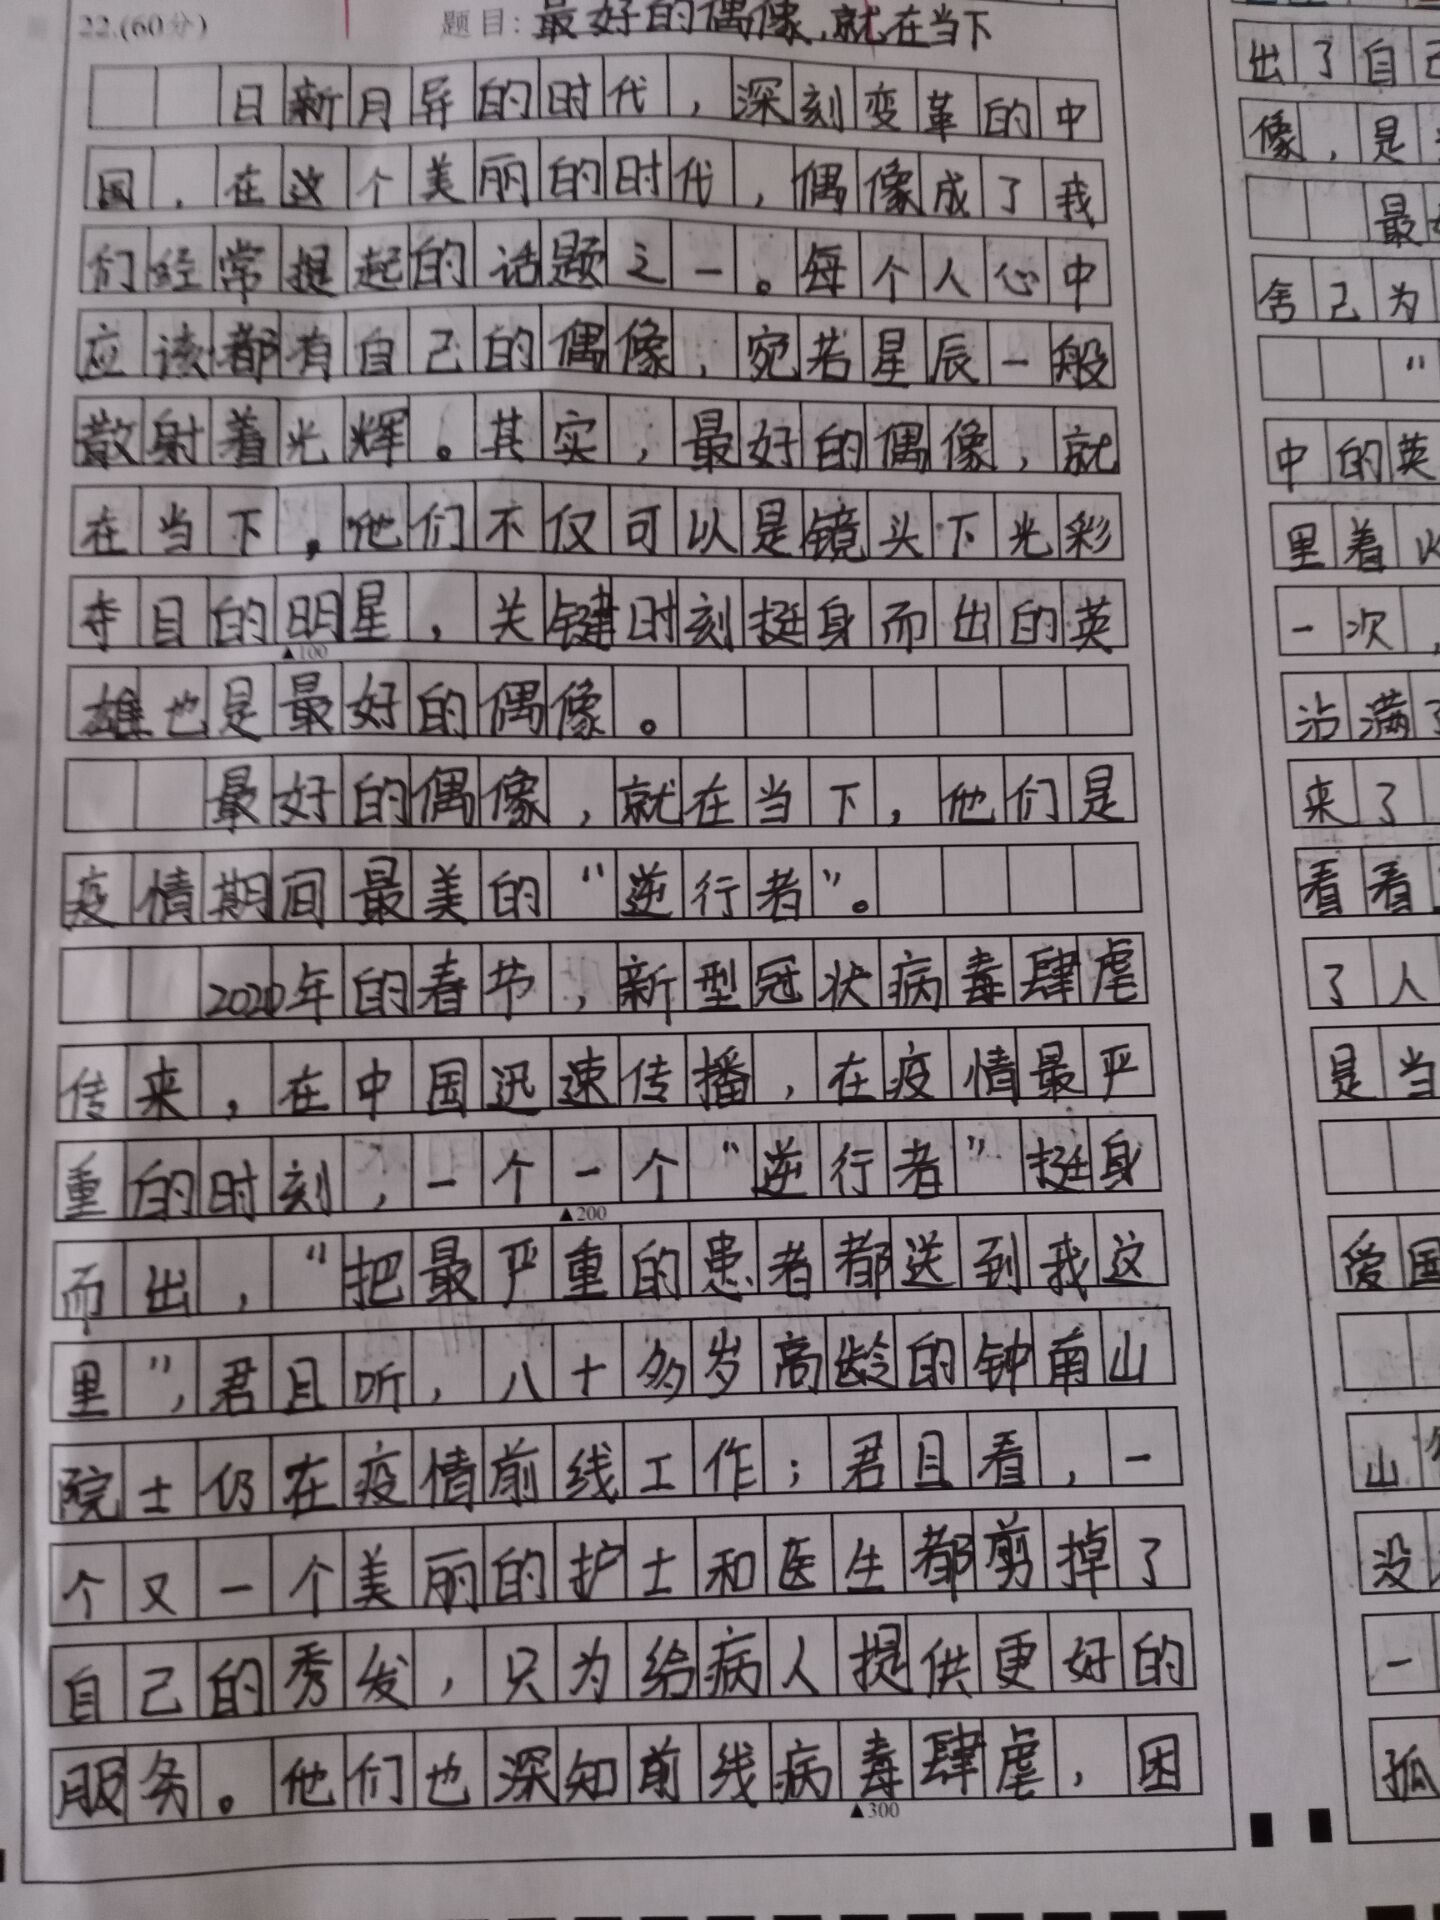 22.(60分) 题目: 最好的偶像,就在当下
日新月异的时代，深刻变革的中
国，在这个美丽的时代，偶像成了我
们经常提起的话题之一。每个人心中
应该都有自己的偶像，宛若星辰一般
散射着光辉。其实，最好的偶像，就
在当下，他们不仅可以是镜头下光彩
夺目的明星，关键时刻挺身而出的英
▲100
雄也是最好的偶像。
最好的偶像，就在当下，他们是
疫情期间最美的“逆行者”。
2020年的春节，新型冠状病毒肆虐
传来，在中国迅速传播，在疫情最严
重的时刻，一个一个“逆行者”挺身
▲200
而出，“把最严重的患者都送到我这
里”，君且听，八十多岁高龄的钟南山
院士仍在疫情前线工作；君且看，一
个又一个美丽的护士和医生都剪掉了
自己的秀发，只为给病人提供更好的
服务。他们也深知前线病毒肆虐，因
▲300
出了自己
像，是
最好
舍己为
“
中的英
里着火
一次，
沾满了
来了
看看
了人
是当
爱国
山
没
一
孤